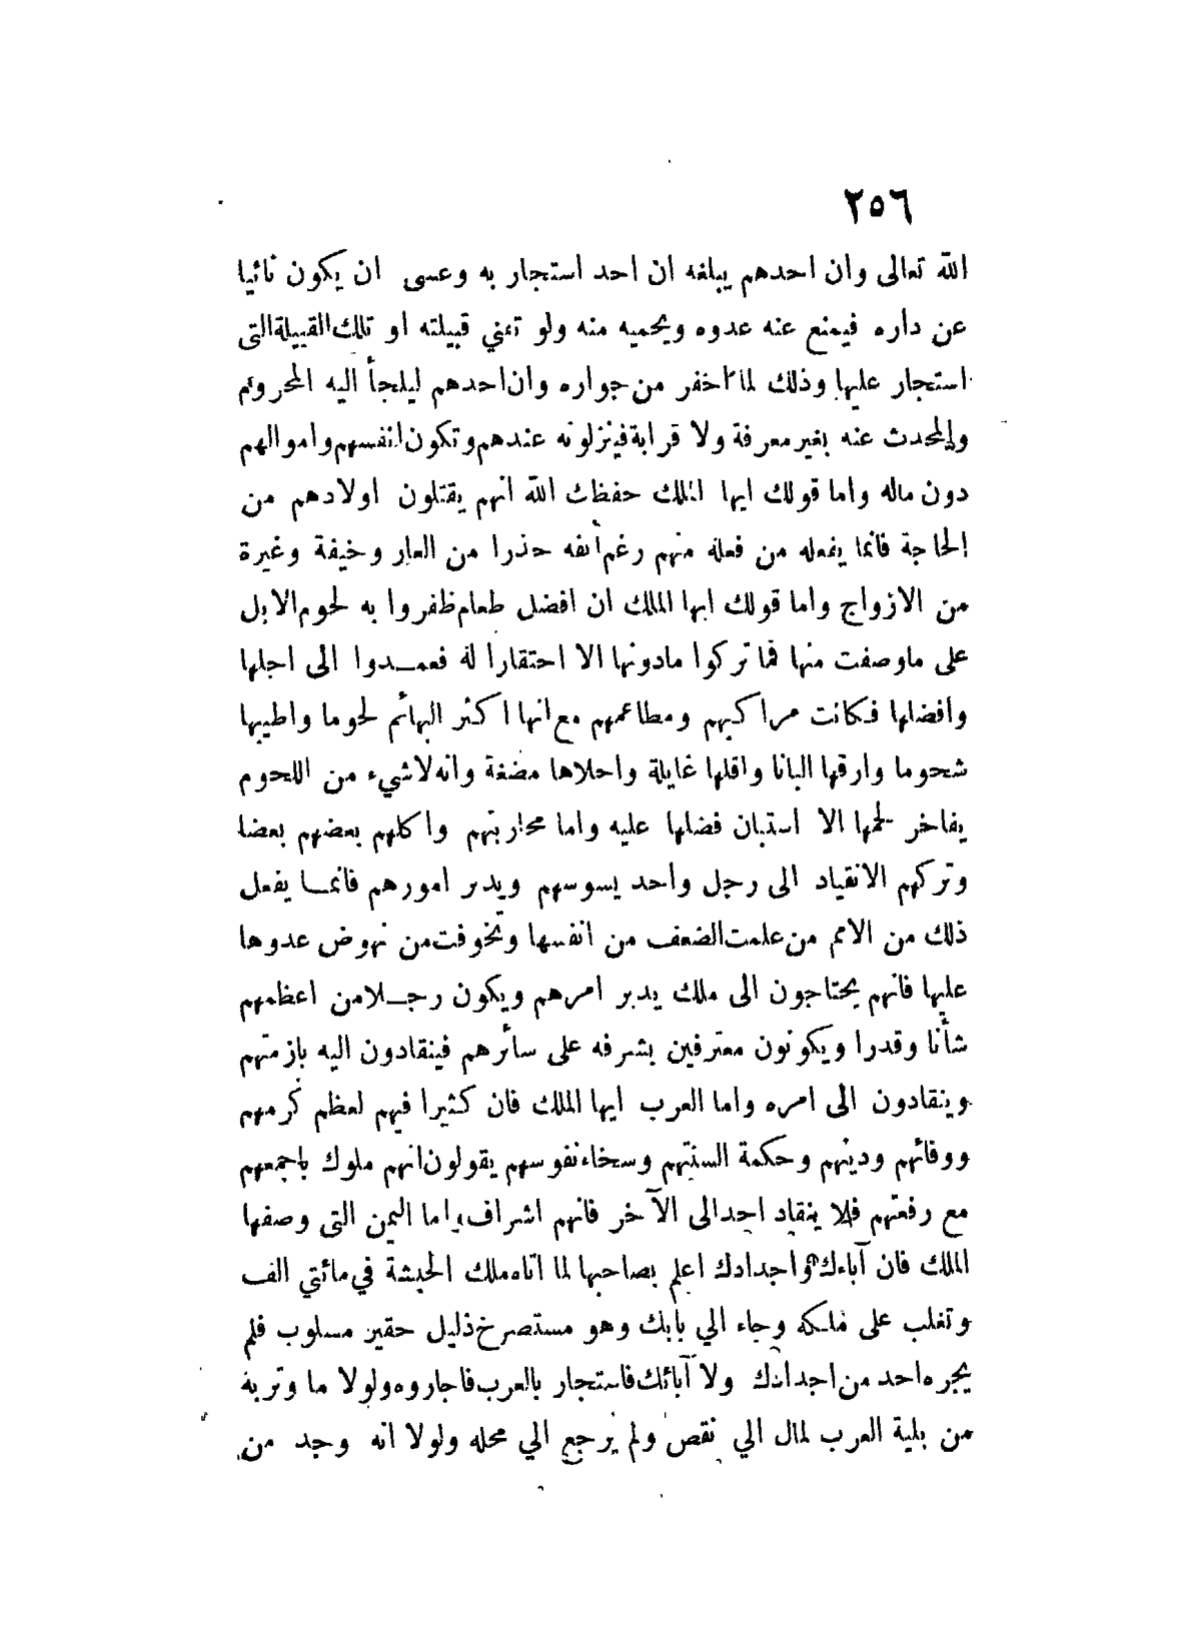 ٢٥٦
الله تعالى وان احدهم يبلغه ان احد استجار به وعسى ان يكون نائيا
عن داره فيمنع عنه عدوه ويحميه منه ولو تفني قبيلته او تلك القبيلة التى
استجار عليها وذلك لما اخفر من جواره وان احدهم ليلجأ اليه المحروم
والمحدث عنه بغير معرفة ولا قرابة فينزلونه عندهم وتكون انفسهم واموالهم
دون ماله واما قولك ايها الملك حفظك الله انهم يقتلون اولادهم من
الحاجة فانما يفعله من فعله منهم رغم أنفه حذرا من العار وخيفة وغيرة
من الازواج واما قولك ايها الملك ان افضل طعام ظفروا به لحوم الابل
على ماوصفت منها فما تركوا مادونها الا احتقارا له فعمدوا الى اجلها
وافضلها فكانت مراكبهم ومطاعمهم مع انها اكثر البهائم لحوما واطيبها
شحوما وارقها البانا واقلها غايلة واحلاها مضغة وانه لاشيء من اللحوم
يفاخر لحمها الا استبان فضلها عليه واما محاربتهم واكلهم بعضهم بعضا
وتركهم الانقياد الى رجل واحد يسوسهم ويدبر امورهم فانما يفعل
ذلك من الامم من علمت الضعف من انفسها وتخوفت من نهوض عدوها
عليها فانهم يحتاجون الى ملك يدبر امرهم ويكون رجلا من اعظمهم
شأنا وقدرا ويكونون معترفين بشرفه على سائرهم فينقادون اليه بازمتهم
وينقادون الى امره واما العرب ايها الملك فان كثيرا فيهم لعظم كرمهم
ووفائهم ودينهم وحكمة السنتهم وسخاء نفوسهم يقولون انهم ملوك باجمعهم
مع رفعتهم فلا ينقاد احد الى الآخر فانهم اشراف واما اليمن التى وصفها
الملك فان آباءك واجدادك اعلم بصاحبها لما اتاه ملك الحبشة في مائتي الف
وتغلب على ملكه وجاء الي بابك وهو مستصرخ ذليل حقير مسلوب فلم
يجره احد من اجدادك ولا آبائك فاستجار بالعرب فاجاروه ولولا ما وتر به
من بلية العرب لمال الي نقص ولم يرجع الي محله ولولا انه وجد من